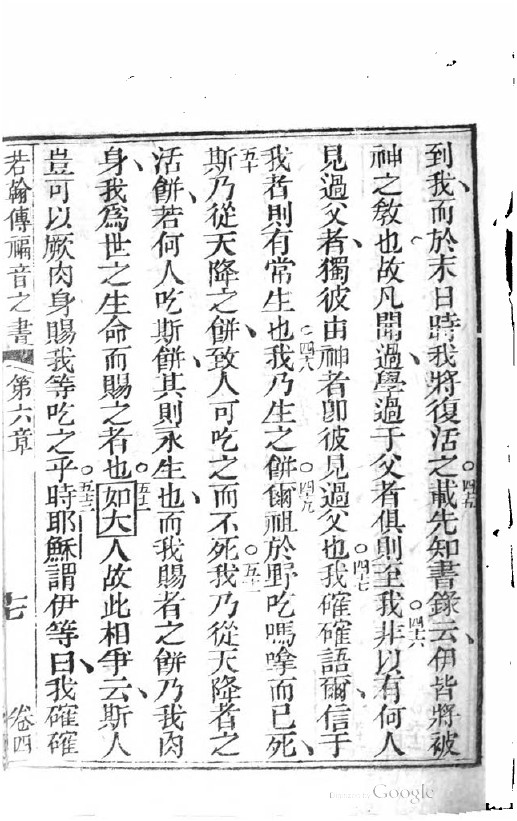 到我而於末日時我將復活之○四五載先知書錄云伊皆將被
神之敎也故凡聞過學過于父者俱則至我○四六非以有何人
見過父者獨彼由神者卽彼見過父也○四七我確確語爾信于
我者則有常生也○四八我乃生之餅○四九爾祖於野吃嗎嗱而已死
五十斯乃從天降之餅致人可吃之而不死○五一我乃從天降者之
活餅若何人吃斯餅其則永生也而我賜者之餅乃我肉
身我爲世之生命而賜之者也○五二如大人故此相爭云斯人
豈可以厥肉身賜我等吃之乎○五三時耶穌謂伊等曰我確確
若翰傳福音之書 第六章 七 卷四
Digitized by Google